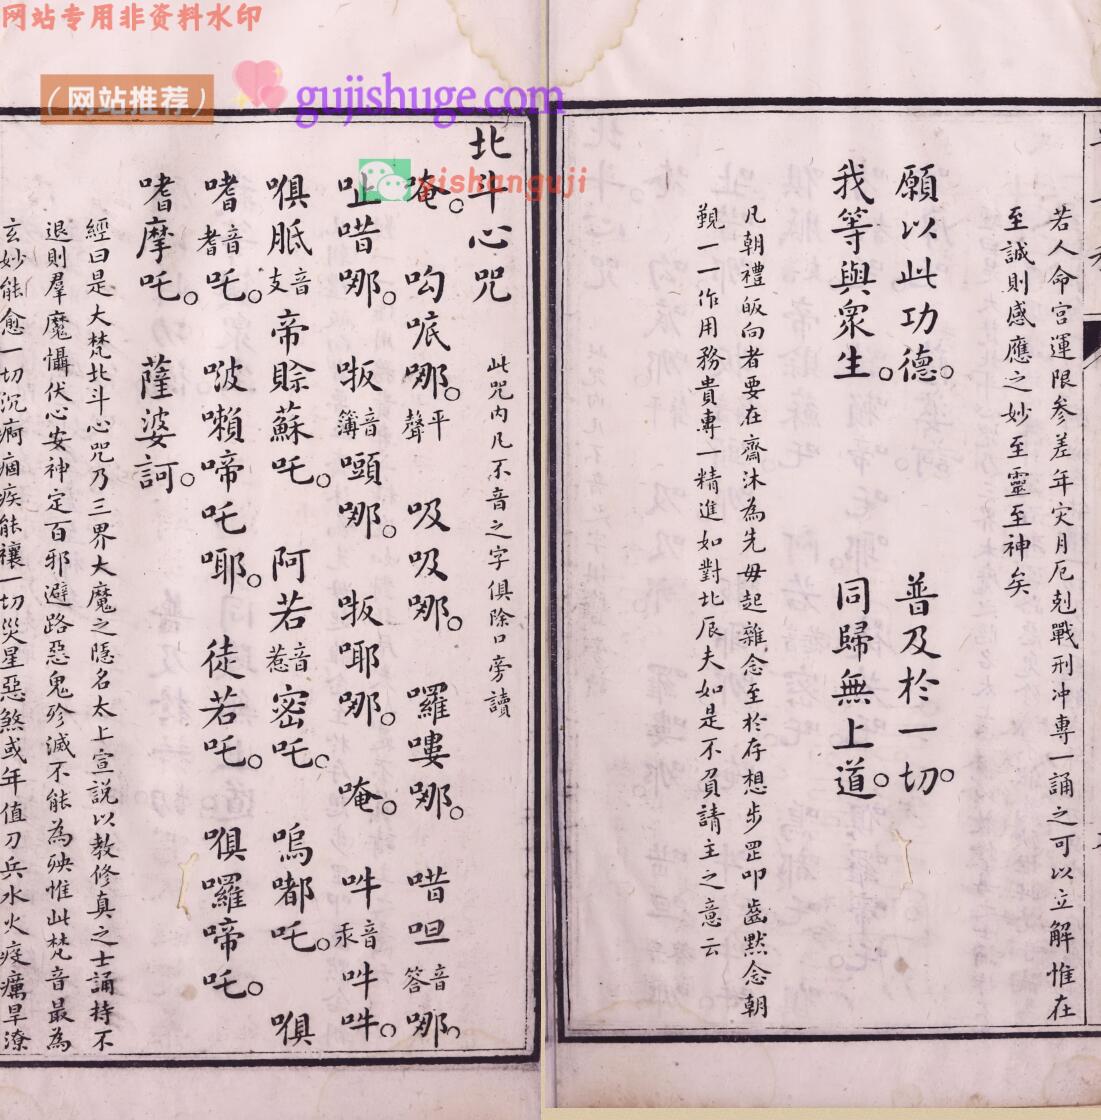 网站专用非资料水印
（网站推荐）
gujishuge.com
gishanguji
若人命宮運限參差年灾月厄剋戰刑冲專一誦之可以立解惟在
至誠則感應之妙至靈至神矣
願以此功德。普及於一切。
我等與衆生。同歸無上道。
凡朝禮皈向者要在齋沐為先毋起雜念至於存想步罡叩齒默念朝
覲一一作用務貴專一精進如對北辰夫如是不負請主之意云
北斗心咒 此咒內凡不音之字俱除口旁讀
唵。呁哌哪。平聲 吸吸哪。囉嘍哪。唶呾音答哪。
吐唶哪。㗑音簿哪。㗑哪。唵。吽音汞吽吽。
㖵胝音支帝賒蘇吒。阿若音惹密吒。嗚嘟吒。㖵
嗜音耆吒。啵嚹啼吒耶。徒若吒。㖵囉啼吒。
嗜摩吒。薩婆訶。
經曰是大梵北斗心咒乃三界大魔之隱名太上宣説以教修真之士誦持不
退則羣魔懾伏心安神定百邪避路惡鬼殄滅不能為殃惟此梵音最為
玄妙能愈一切沉痾痼疾能禳一切災星惡煞或年值刀兵水火疫癘旱潦